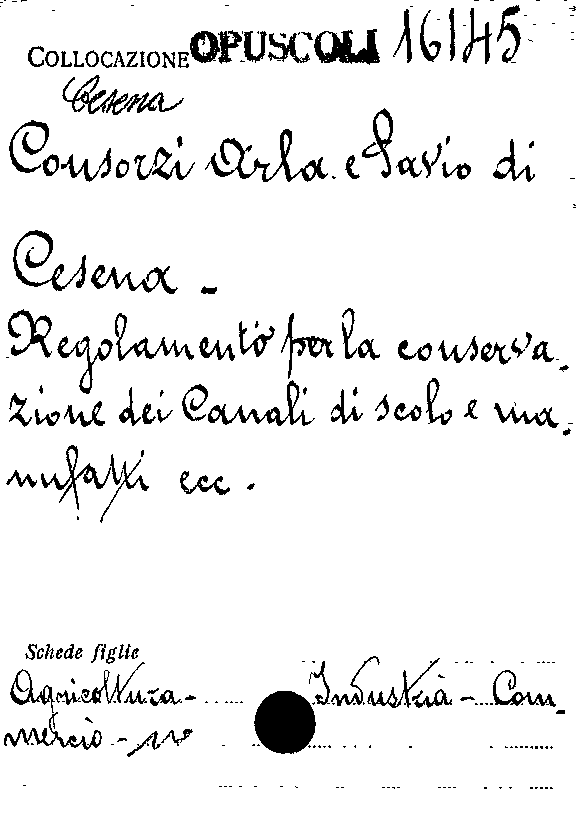 COLLOCAZIONE OPUSCOLI 16145
Cesena
Consorzi Arla e Savio di
Cesena -
Regolamento per la conserva-
zione dei Canali di scolo e ma-
nufatti ecc.
Schede figlie
Agricoltura - Industria - Com-
mercio -